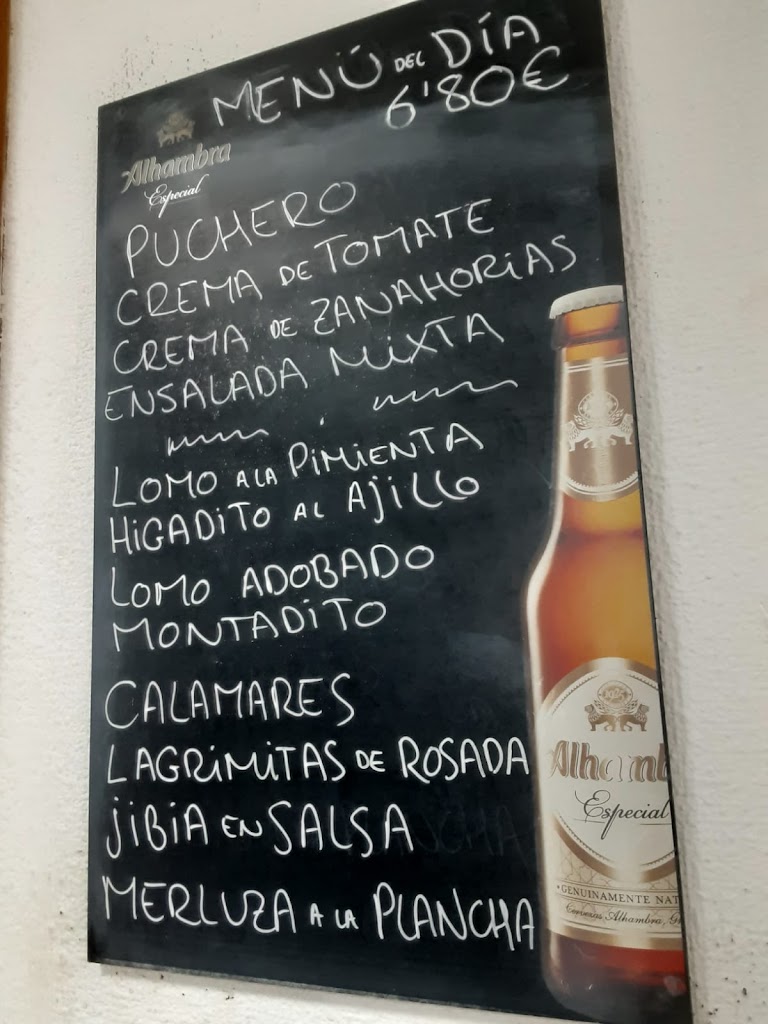 MENÚ DEL DÍA
6'80€
Alhambra
Especial
PUCHERO
CREMA DE TOMATE
CREMA DE ZANAHORIAS
ENSALADA MIXTA
LOMO A LA PIMIENTA
HIGADITO AL AJILLO
LOMO ADOBADO
MONTADITO
CALAMARES
LAGRIMITAS DE ROSADA
JIBIA EN SALSA
MERLUZA A LA PLANCHA
Alhamb
Especial
GENUINAMENTE NAT
Cervezas Alhambra, G